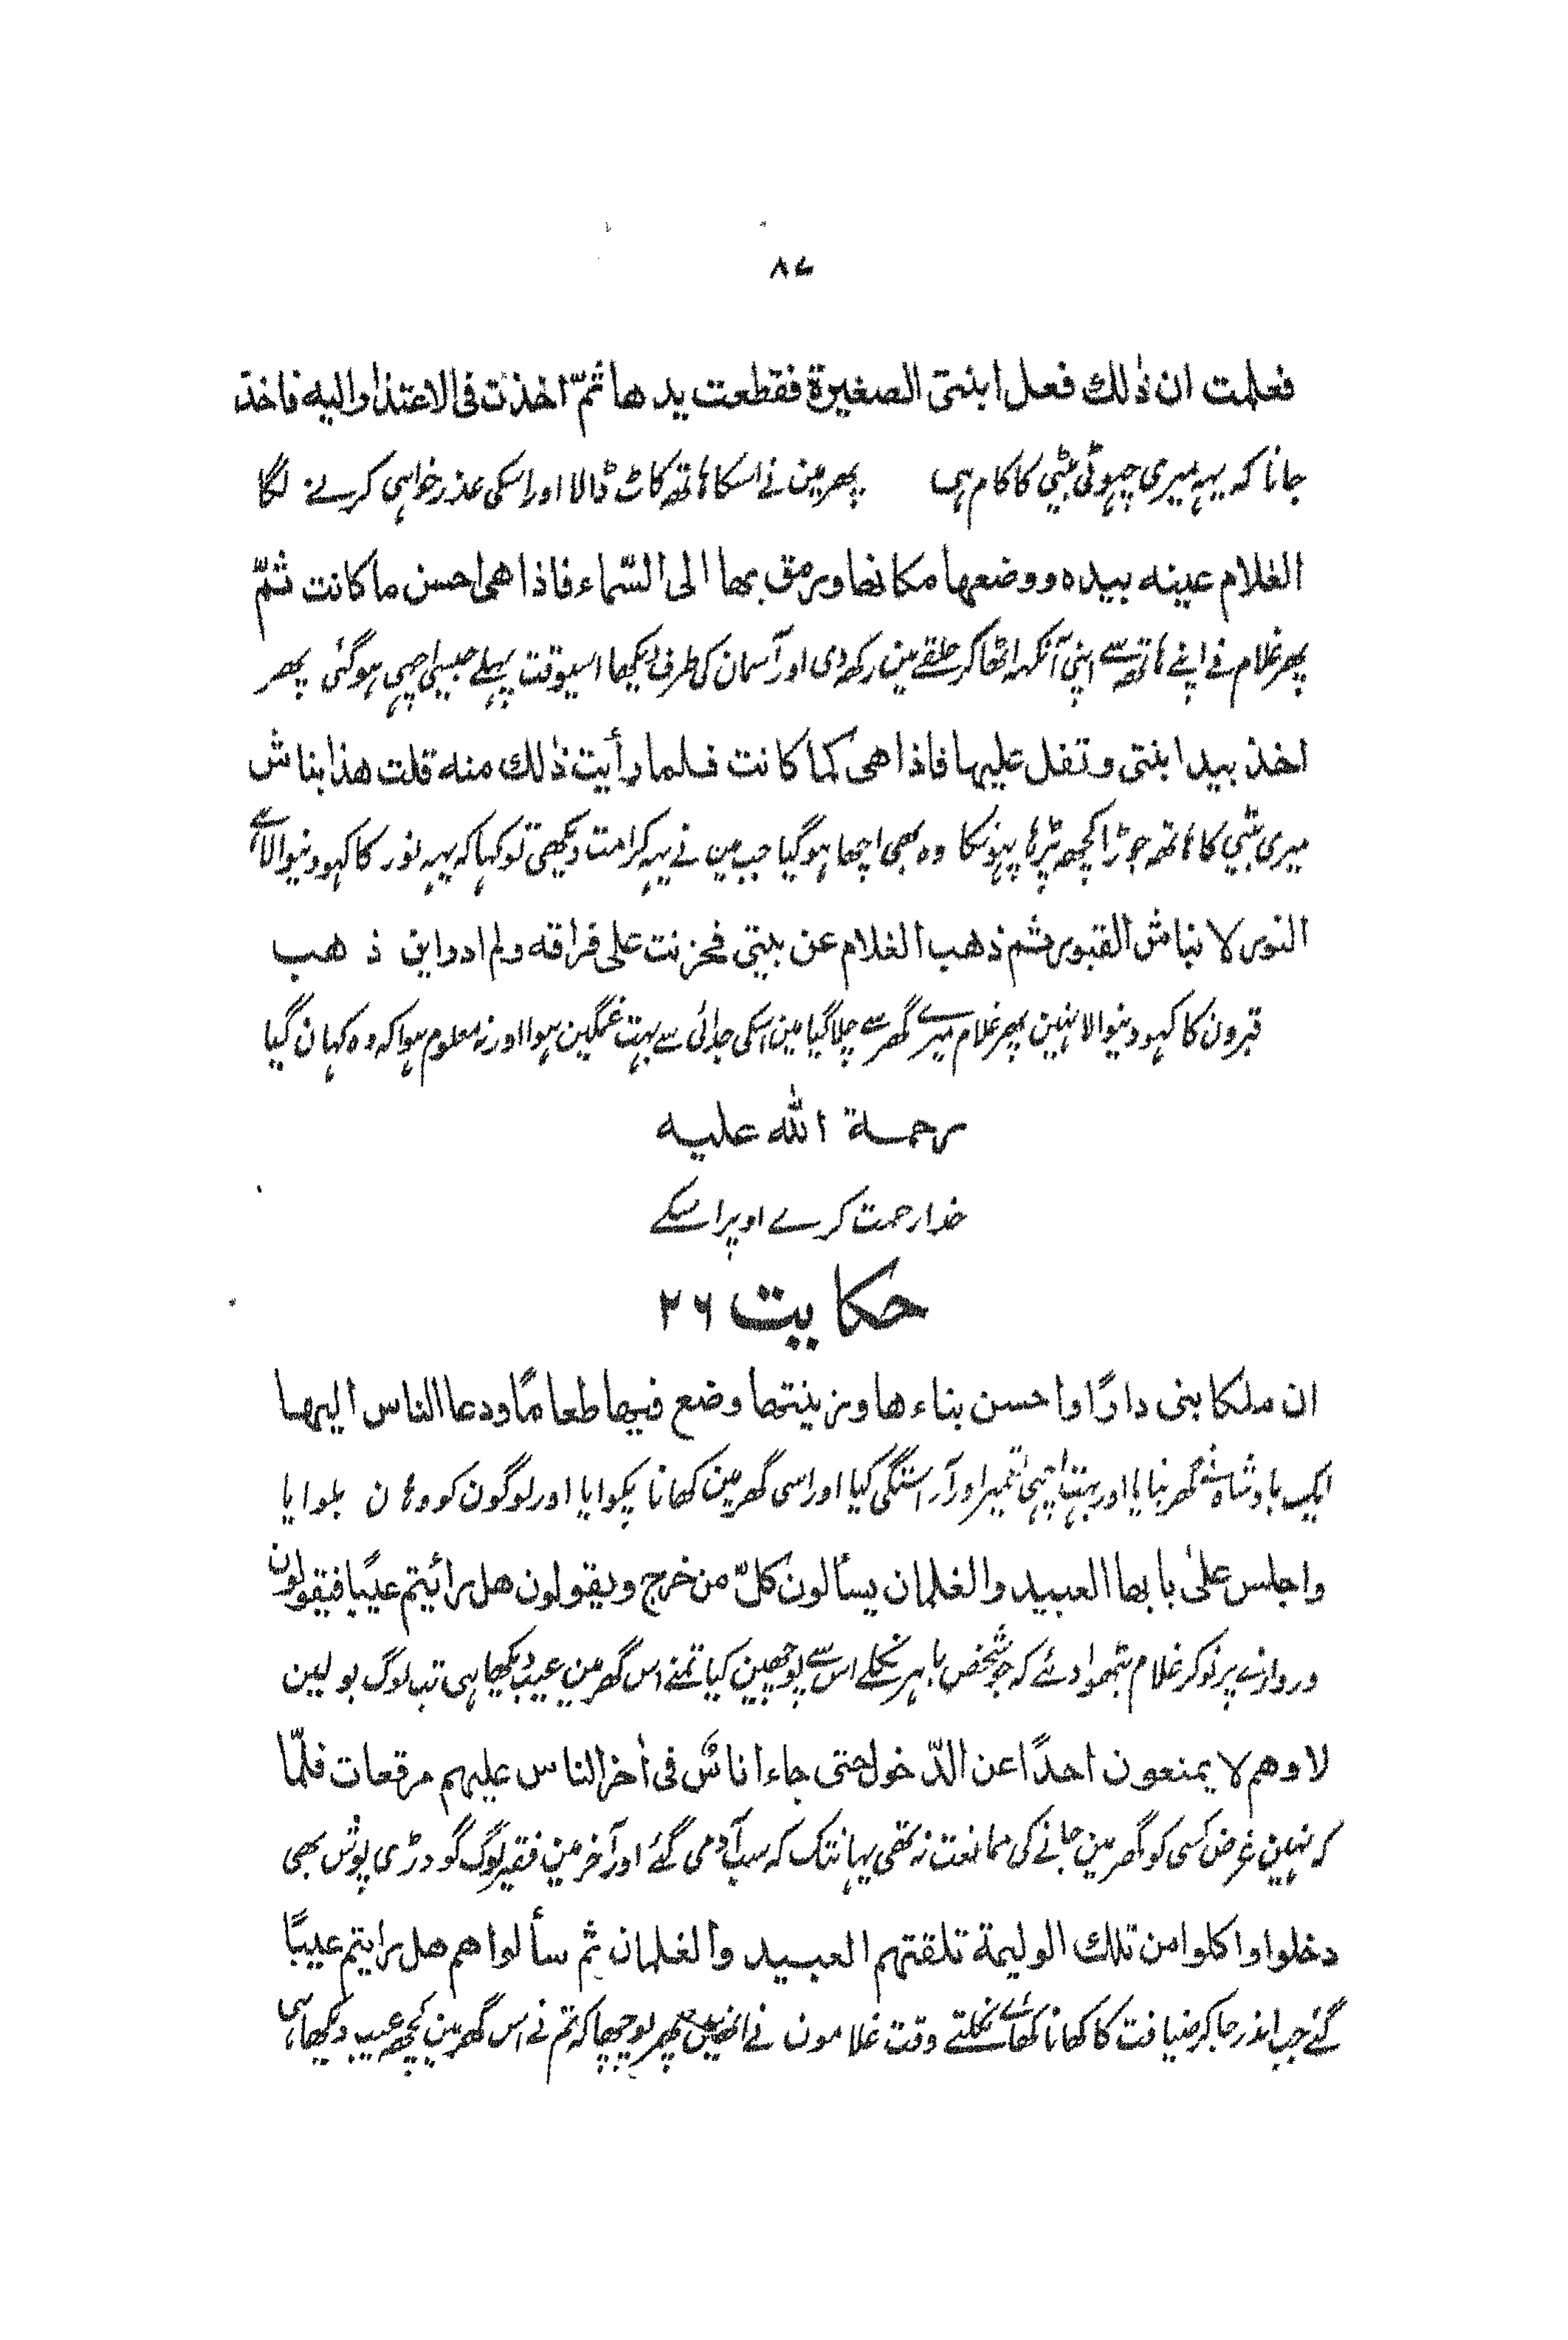 ۸۷
فعلمت ان ذٰلك فعل ابنتى الصغيرة فقطعت يدها ثمّ اخذت فى الاعتذار اليه فاخذ
جانا کہ یہہ میری چہوٹی بیٹی کا کام ہی پھر مین نے اسکا ہاتھ کاٹ ڈالا اور اسکی عذر خواہی کرنے لگا
الغلام عينه بيده ووضعها مكانها ورمق بها الى السّماء فاذا هى احسن ما كانت ثمّ
پھر غلام نے اپنے ہاتھ سے اپنی آنکہہ اٹھا کر حلقے مین رکھدی اور آسمان کی طرف دیکھا اسیوقت پہلے جیسی اچہی ہو گئی پھر
اخذ بيد ابنتى و تفل عليها فاذا هى كما كانت فلما رأيت ذٰلك منه قلت هذا نباش
میری بیٹی کا ہاتھ جوڑا کچھ پڑہا پہونکا وہ بھی اچھا ہو گیا جب مین نے یہہ کرامت دیکھی تو کہا کہ یہہ نور کا کہودنیوالا ہے
النور لا نباش القبور ثم ذهب الغلام عن بيتى فحزنت على فراقه ولم ادر اين ذ هب
قبرون کا کہودنیوالا نہین پھر غلام میرے گھر سے چلا گیا مین اسکی جدائی سے بہت غمگین ہوا اور نہ معلوم ہوا کہ وہ کہان گیا
رحمة الله عليه
خدا رحمت کرے اوپر اسکے
حکایت ۲۶
ان ملكا بنى دارًا واحسن بناءها وزينتها وضع فيها طعامًا ودعا الناس اليها
ایک بادشاہ نے گھر بنایا اور بہت اچہی تعمیر اور آراستگی کیا اور اسی گھر مین کھانا پکوایا اور لوگون کو وہان بلوایا
واجلس علىٰ بابها العبيد والغلمان يسألون كلّ من خرج ويقولون هل رائيتم عيبًا فيقولون
دروازے پر نوکر غلام بٹھوا دئے کہ جو شخص باہر نکلے اس سے پوچھین کیا تمنے اس گھر مین عیب دیکھا ہی تب لوگ بولین
لا وهم لا يمنعون احدًا عن الدّخول حتى جاء اناسٌ فى اٰخر الناس عليهم مرقعات فلمّا
کہ نہین غرض کسی کو گھر مین جانے کی ممانعت نہ تھی یہانتک کہ سب آدمی گئے اور آخر مین فقیر لوگ گودڑی پوش بھی
دخلوا واكلوا من تلك الوليمة تلقتهم العبيد والغلمان ثم سألوا هم هل رايتم عيبًا
گئے جب اندر جا کر ضیافت کا کھانا کھائے نکلتے وقت غلامون نے انھین پھر پوچھا کہ تم نے اس گھر مین کچھ عیب دیکھا ہی